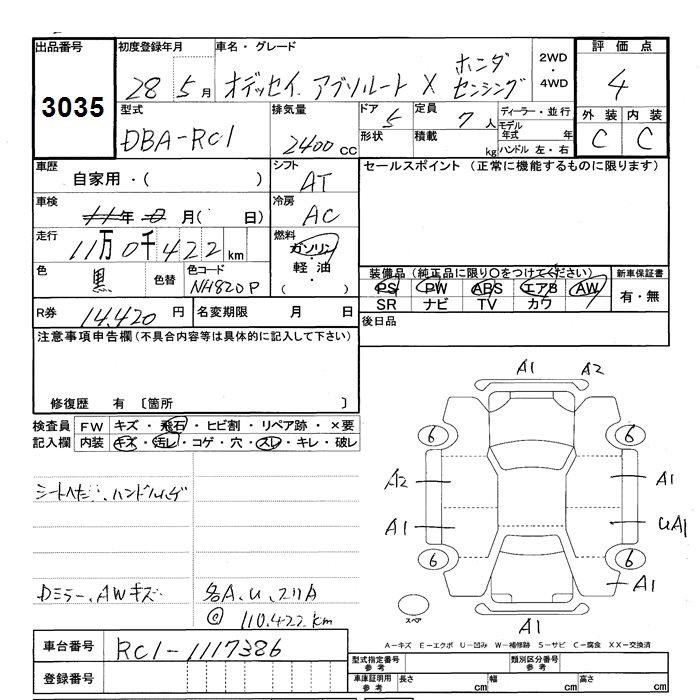 出品番号 初度登録年月 車名・グレード 2WD・4WD 評価点
3035 28 5月 オデッセイ アブソルート X ホンダセンシング 4
型式 排気量 ドア 5 定員 7人 ディーラー・並行 外装 内装
DBA-RC1 2400 CC 形状 積載 kg モデル年式 年 ハンドル 左・右 C C
車歴 自家用・( ) シフト AT セールスポイント (正常に機能するものに限ります)
車検 11年 月( 日) 冷房 AC
走行 11万0千422 km 燃料 ガソリン・軽油・( )
色 黒 色替 色コード NH820P 装備品 (純正品に限り○をつけてください) 新車保証書
PS PW ABS エアB AW 有・無
SR ナビ TV カワ
R券 14,420 円 名変期限 月 日 後日品
注意事項申告欄 (不具合内容等は具体的に記入して下さい)
修復歴 有 〔箇所 〕
検査員 FW キズ・飛石・ヒビ割・リペア跡・×要
記入欄 内装 キズ・汚レ・コゲ・穴・スレ・キレ・破レ
シートへたり、ハンドルハゲ
Dミラー、AWキズ 各A、U、スリA
@ 110.422 km
A1 A2
6 6
A2 A1
A1 UA1
6 6
A1
スペア
A1
A-キズ E-エクボ U-凹み W-補修跡 S-サビ C-腐食 XX-交換済
車台番号 RC1-1117386
登録番号
型式指定番号 参考 類別区分番号 参考
車庫証明用 参考 長さ cm 幅 cm 高さ cm